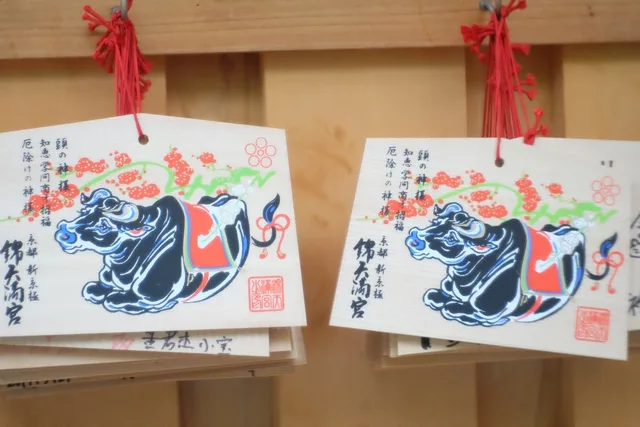 頭の神様
知恵 学問 商才 招福
厄除けの神様
京都 新京極
錦天満宮
頭の神様
知恵 学問 商才 招福
厄除けの神様
京都 新京極
錦天満宮